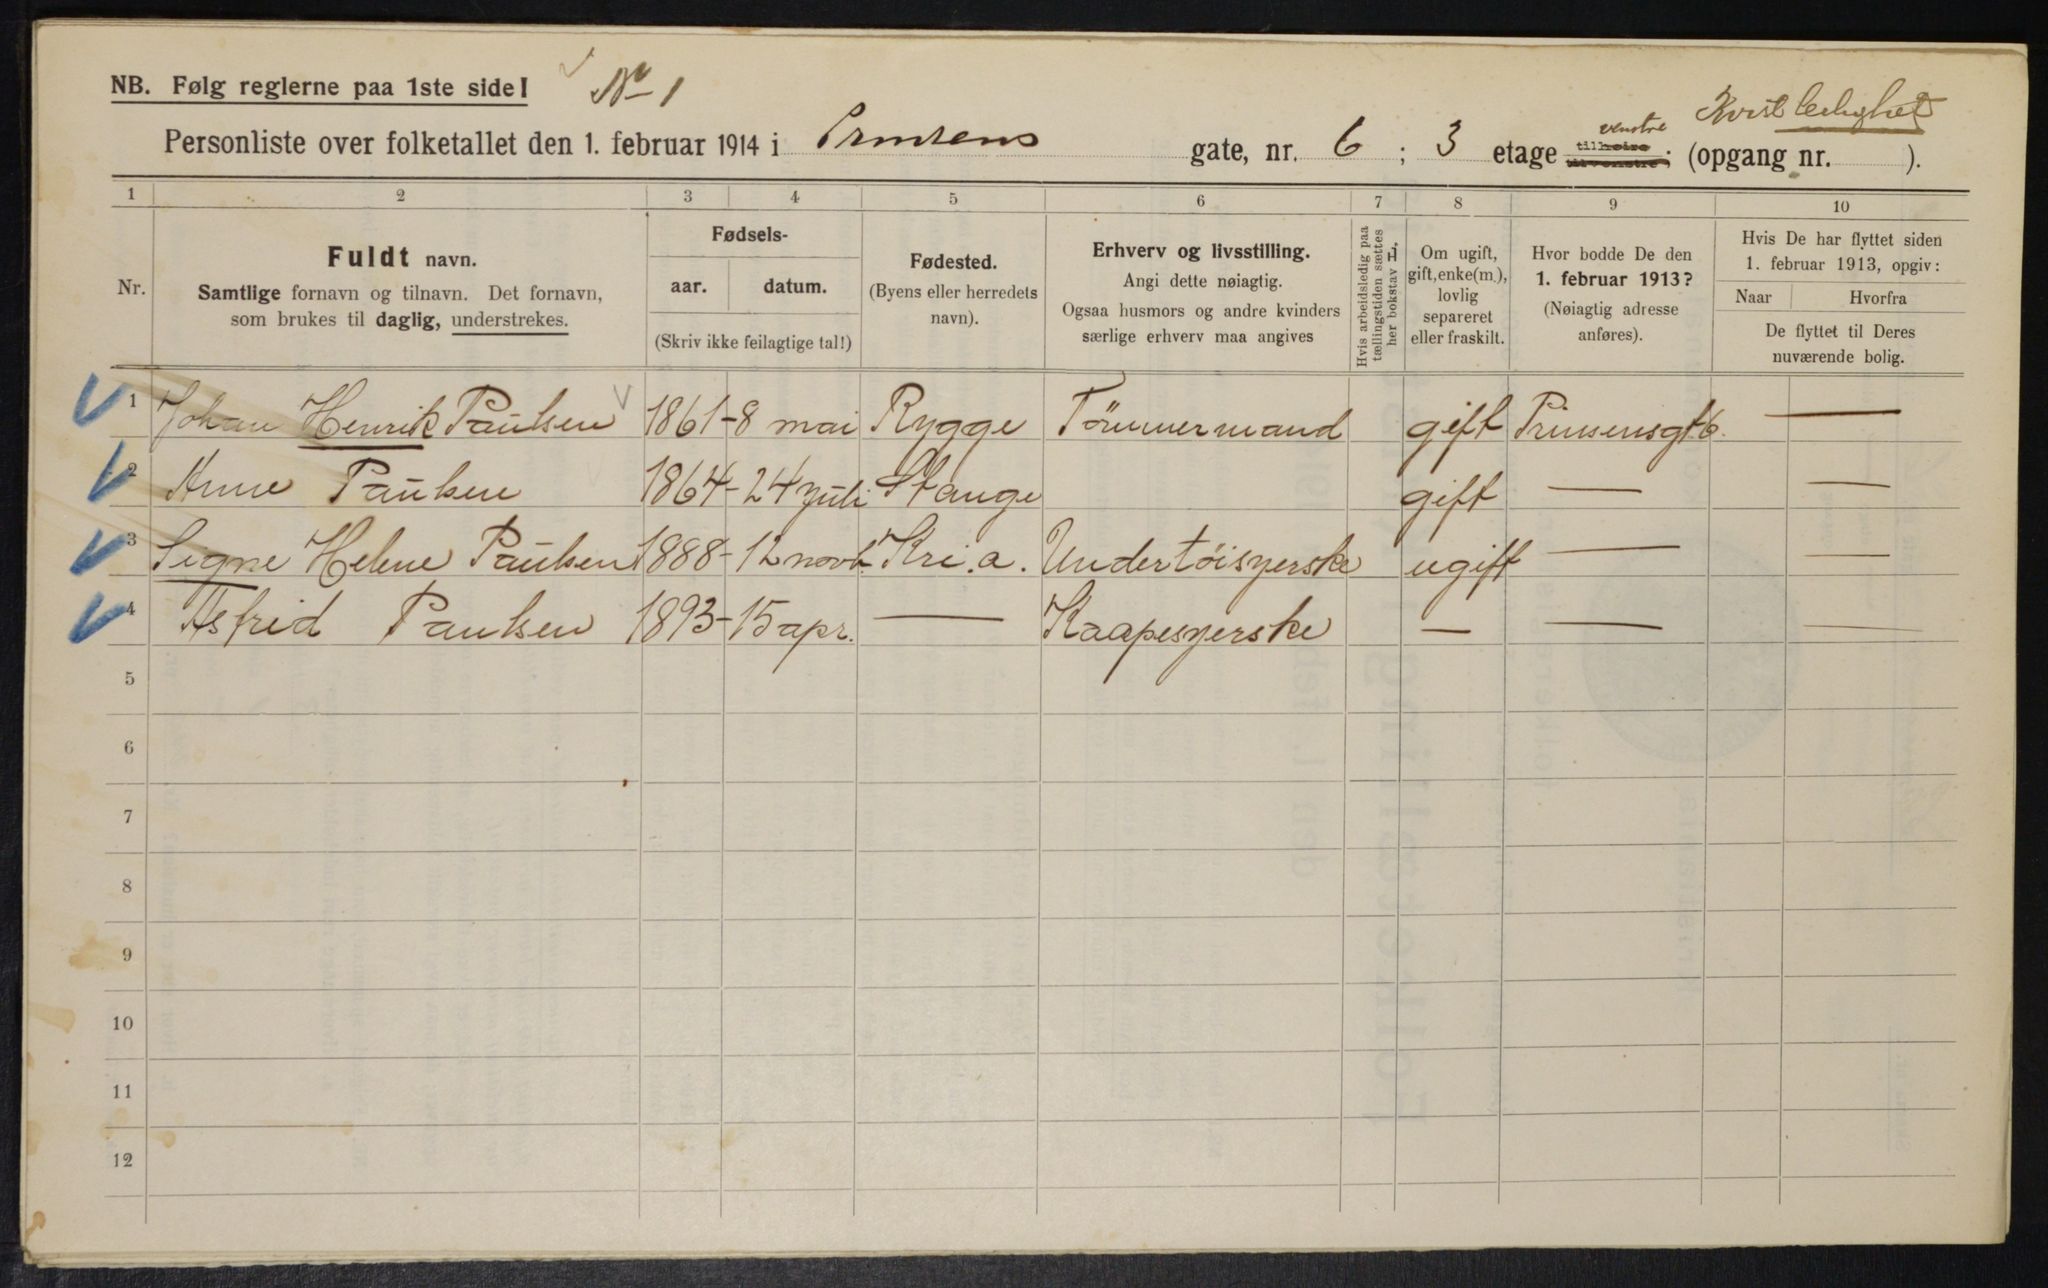 NB. Følg reglerne paa 1ste side! No 1
Kvistleilighet
Personliste over folketallet den 1. februar 1914 i Prinsens gate, nr. 6 ; 3 etage venstre til høire til venstre ; (opgang nr. ).
1 2 3 4 5 6 7 8 9 10
Nr.
Fuldt navn.
Samtlige fornavn og tilnavn. Det fornavn,
som brukes til daglig, understrekes.
Fødsels-
aar. datum.
(Skriv ikke feilagtige tal!)
Fødested.
(Byens eller herredets
navn).
Erhverv og livsstilling.
Angi dette nøiagtig.
Ogsaa husmors og andre kvinders
særlige erhverv maa angives
Hvis arbeidsledig paa
tællingstiden sættes
her bokstav L,
Om ugift,
gift, enke(m.),
lovlig
separeret
eller fraskilt.
Hvor bodde De den
1. februar 1913?
(Nøiagtig adresse
anføres).
Hvis De har flyttet siden
1. februar 1913, opgiv:
Naar Hvorfra
De flyttet til Deres
nuværende bolig.
1 Johan Henrik Paulsen 1861 - 8 mai Rygge Tömmermand gift Prinsensgt 6. —
2 Anne Paulsen 1864 - 24 juli Stange gift — —
3 Signe Helene Paulsen 1888 - 12 novb. Kri.a. Undertöisyerske ugift — —
4 Asfrid Paulsen 1893 - 15 apr. — Kaapesyerske — — —
5
6
7
8
9
10
11
12